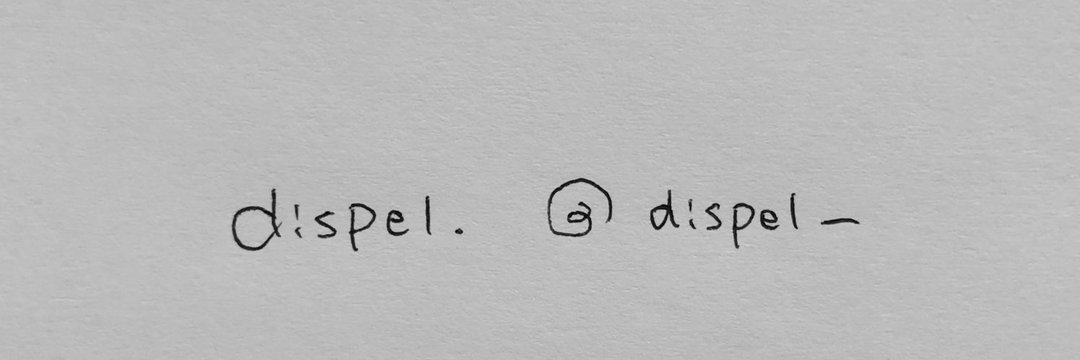 dispel. @dispel_